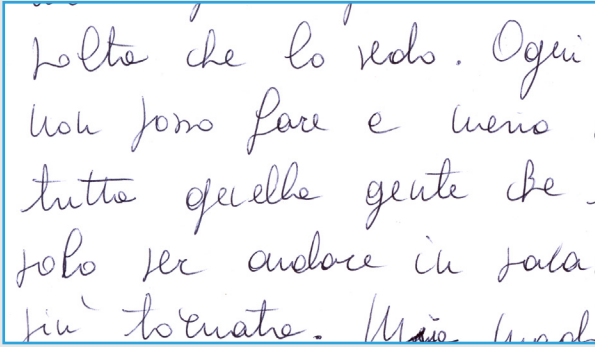 volta che lo vedo. Ogni
non posso fare e meno
tutta quella gente che
solo per andare in sala
più tornata. Mia